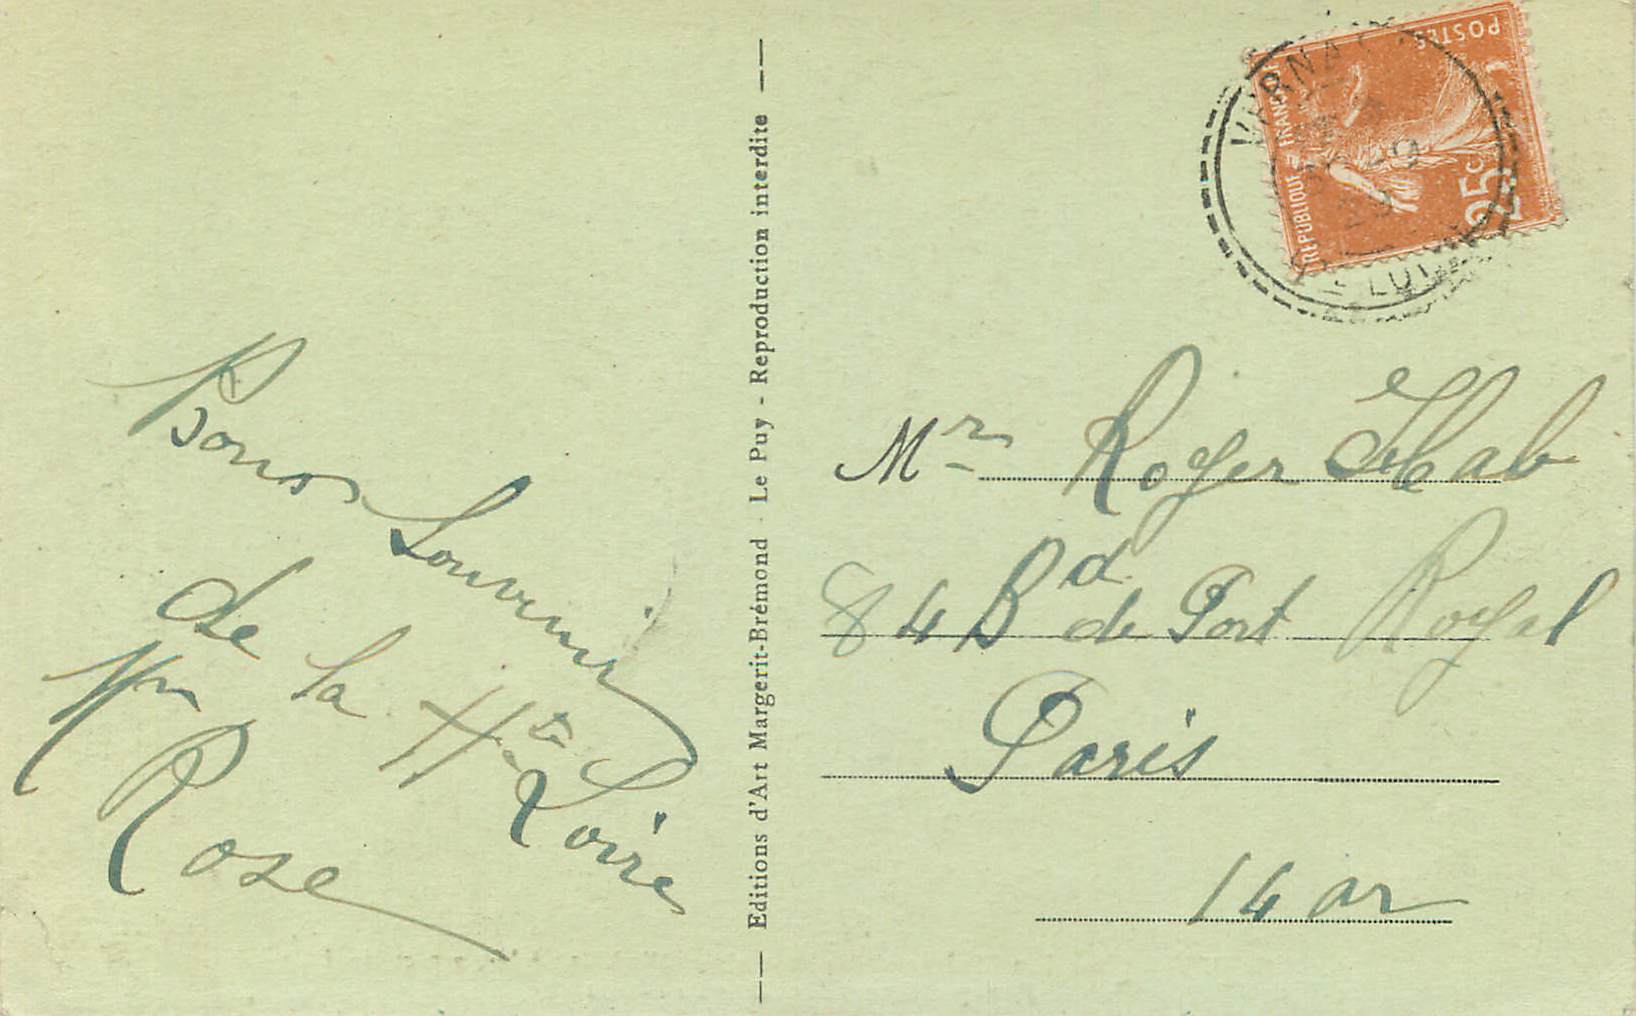 Bons Souvenir
de la Hte Loire
Mr Rose
Editions d'Art Margerit-Brémond - Le Puy - Reproduction interdite
POSTES
REPUBLIQUE FRANÇAISE
25c
Mr Roger
84 Bd de Port Royal
Paris
14 ar